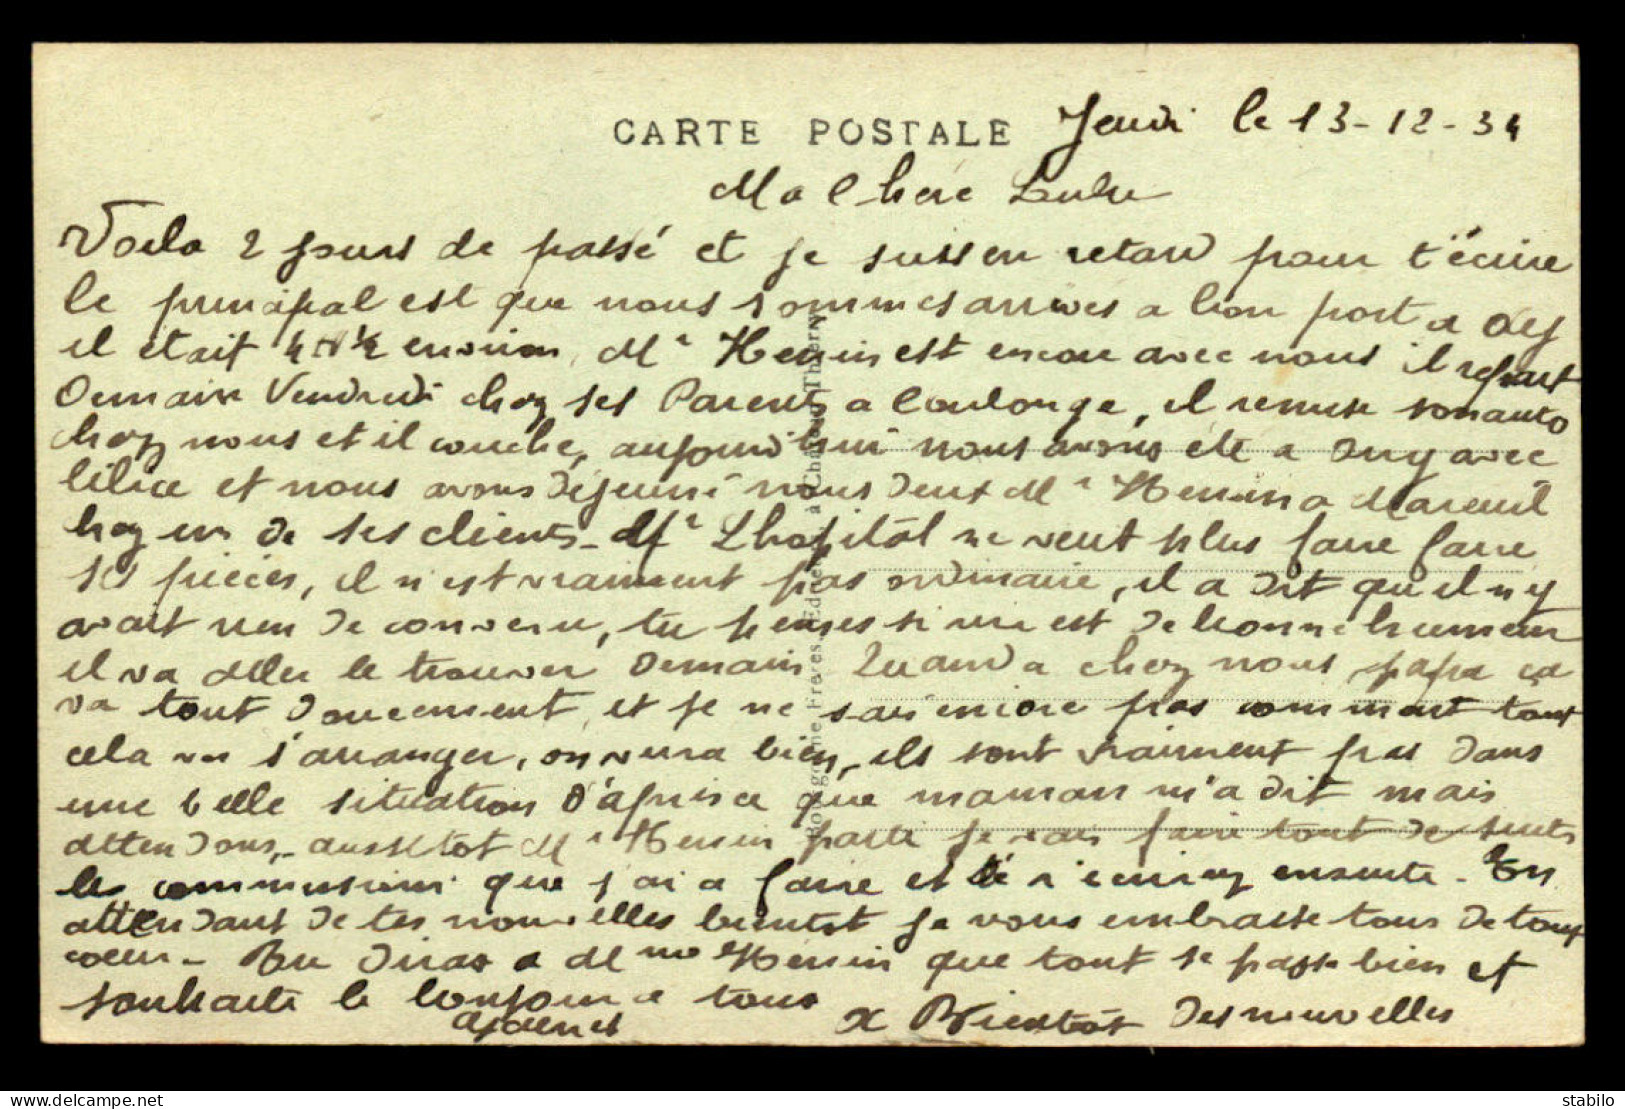 CARTE POSTALE Jeudi le 13-12-34
Ma Chere Lulu
Voila 2 jours de passé et je suis en retard pour t'écrire
le principal est que nous sommes arrivés a bon port a
il était 4 h ½ environ, Mr Henin est encore avec nous il repart
Demain Vendredi chez ses Parents a Coulonge, il remise son auto
chez nous et il couche, aujourd'hui nous avons été a avec
et nous avons déjeuné nous deux Mr Henin a Mareuil
chez un de ses clients - Mr Lhopital ne veut plus faire faire
ses pièces, il n'est vraiment pas ordinaire, il a dit qu'il n'y
avait rien de convenu, tu penses si est de bonne humeur
il va aller le trouver Demain Quand a chez nous papa ca
va tout doucement, et je ne sais encore pas comment tout
cela va s'arranger, on verra bien, ils sont vraiment pas dans
une belle situation d'après ce que maman m'a dit mais
attendons, - aussitot Mr Henin parti je vais faire tout de suite
les commissions que j'ai a faire et ensuite - En
attendant de tes nouvelles bientot je vous embrasse tous de tout
coeur - Tu diras a Mme Henin que tout se passe bien et
souhaite le bonjour a tous
a Bientôt des nouvelles
Bourgogne Frères, Edit., à Château-Thierry
stabilo